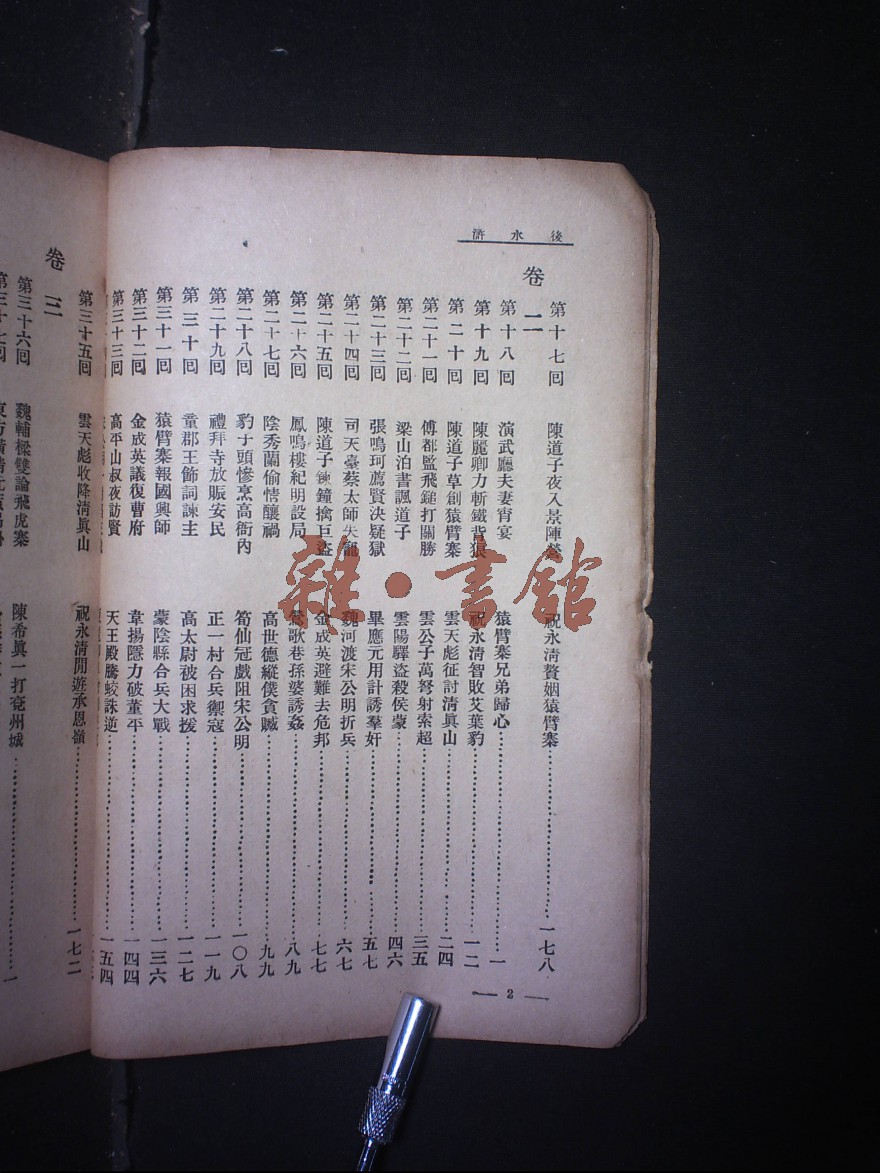 後水滸
第十七回 陳道子夜入景陽營 祝永清贅姻猿臂寨 一七八
卷二
第十八回 演武廳夫妻宵宴 猿臂寨兄弟歸心 一
第十九回 陳麗卿力斬鐵背狼 祝永清智敗艾葉豹 一二
第二十回 陳道子草創猿臂寨 雲天彪征討清真山 二四
第二十一回 傅都監飛鎚打關勝 雲公子萬弩射索超 三五
第二十二回 梁山泊書諷道子 雲陽驛盜殺侯蒙 四六
第二十三回 張鳴珂薦賢決疑獄 畢應元用計誘羣奸 五七
第二十四回 司天臺蔡太師失寵 魏河渡宋公明折兵 六七
第二十五回 陳道子鍊鐘擒巨盜 金成英避難去危邦 七七
第二十六回 鳳鳴樓紀明設局 鶯歌巷孫婆誘姦 八九
第二十七回 陰秀蘭偷情釀禍 高世德縱僕貪贓 九九
第二十八回 豹子頭慘烹高衙內 筍仙冠戲阻宋公明 一〇八
第二十九回 禮拜寺放賑安民 正一村合兵禦寇 一一九
第三十回 童郡王飾詞諫主 高太尉被困求援 一二七
第三十一回 猿臂寨報國興師 蒙陰縣合兵大戰 一三六
第三十二回 金成英議復曹府 韋揚隱力破董平 一四四
第三十三回 高平山叔夜訪賢 天王殿騰蛟誅逆 一五四
第三十五回 雲天彪收降清眞山 祝永清閒遊承恩嶺 一七二
卷三
第三十六回 魏輔樑雙論飛虎寨 陳希眞一打兗州城 一
第三十七回
2
雜·書館